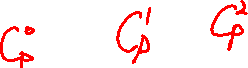 C_p^0 C_p^1 C_p^2